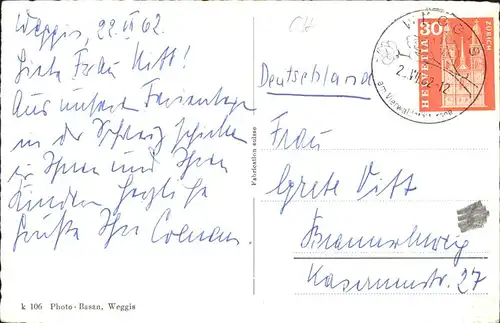 Weggis, 22.VI 62
Liebe Frau Vitt!
Aus unseren Ferientagen
in der Schweiz schicken
wir Ihnen und Ihren
Kindern herzliche
Grüße Ihre
k 106 Photo-Basan, Weggis
Fabrication suisse
CH
Deutschland
WEGGIS
2.VII.62-12
am Vierwaldstättersee
30
HELVETIA
ZÜRICH
Frau
Grete Vitt
Braunschweig
Kasernenstr. 27